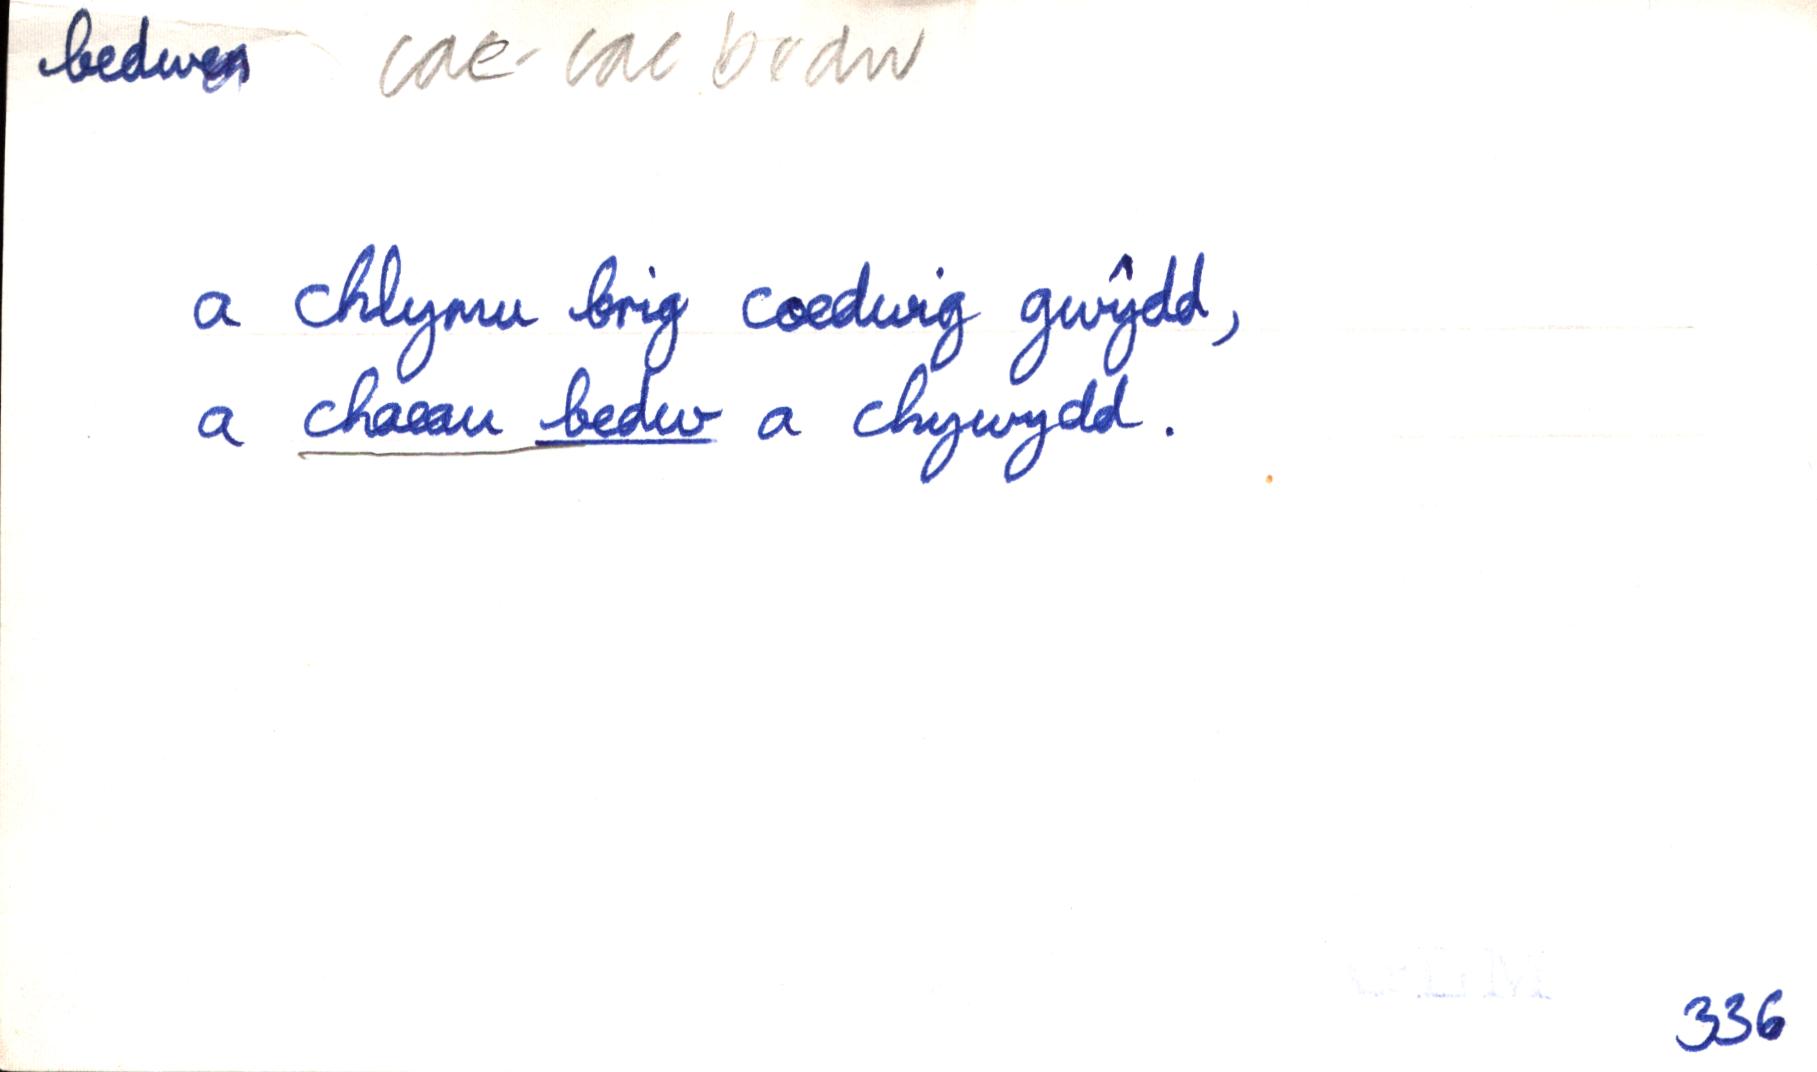 bedwen cae - cae bedw
a chlymu brig coedwig gwŷdd,
a chaeau bedw a chywydd.
336